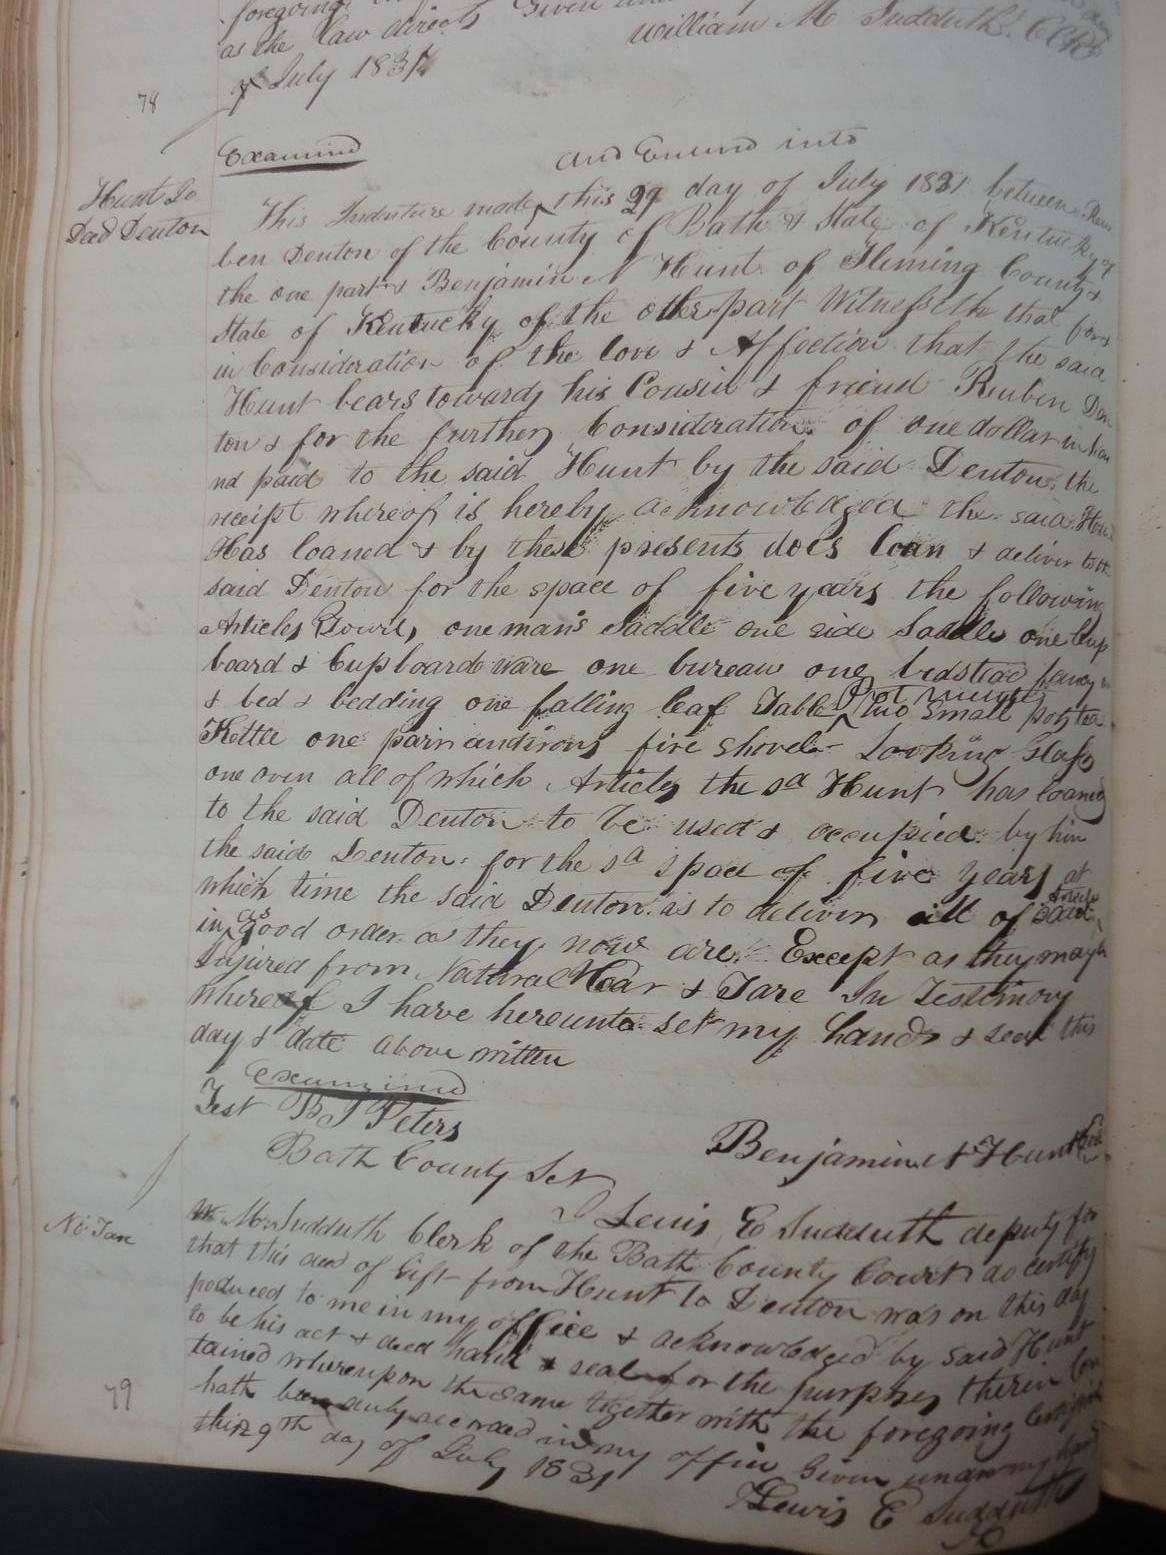 foregoing
as the law directs Given
William M Sudduth CCBC
of July 1831
78
Examined
and Entered into
Hunt To
Deed Denton
This Indenture made this 29 day of July 1831 between Reu
ben Denton of the County of Bath & State of Kentucky of
the one part & Benjamin N Hunt of Fleming County &
State of Kentucky of the other part Witnesseth that for &
in Consideration of the love & Affection that the said
Hunt bears towards his Cousin & friend Reuben Den
ton & for the further Consideration of one dollar in ha
nd paid to the said Hunt by the said Denton the
receipt whereof is hereby acknowledged the said Hunt
Has loaned & by these presents does loan & deliver to the
said Denton for the space of five years the following
Articles Towit, one man's Saddle one side Saddle one Cup
board & Cupboard ware one bureau one bedstead
& bed & bedding one falling leaf Table two Small pots tea
Kettle one pair andirons fire shovel Looking Glass
one oven all of which Articles the sd Hunt has loaned
to the said Denton to be used & occupied by him
the said Denton for the sd space of five years at
which time the said Denton is to deliver all of said Articles
in as good order as they now are Except as they may be
Injured from Natural Wear & Tare In Testimony
whereof I have hereunto set my hand & seal this
day & date above written
examined
Test B J Peters
Benjamin N Hunt Seal
Bath County Sct
No Tax
I Lewis E Sudduth deputy for
Wm M Sudduth Clerk of the Bath County Court do certify
that this deed of Gift from Hunt to Denton was on this day
poduced to me in my office & acknowledged by said Hunt
to be his act & deed hand & seal for the purposes therein Con
tained whereupon the same together with the foregoing Certificate
hath been duly recorded in my office Given under my hand
this 29th day of July 1831
79
Lewis E Sudduth
DC